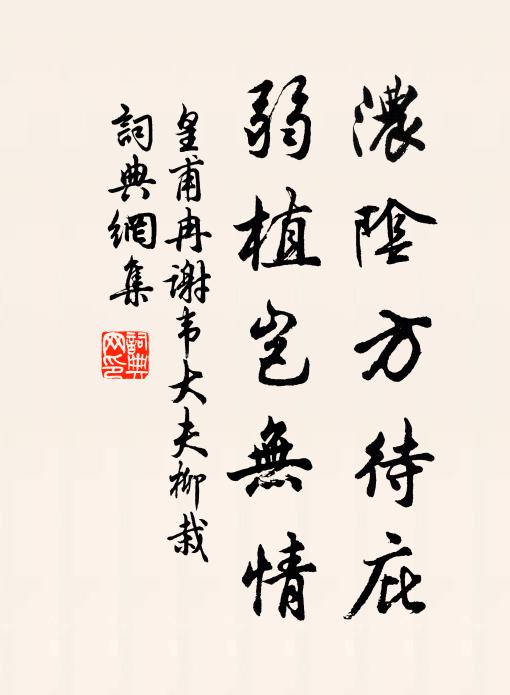 濃陰方待庇
弱植豈無情
皇甫冉謝韦大夫柳栽
詞典網集
詞典网印